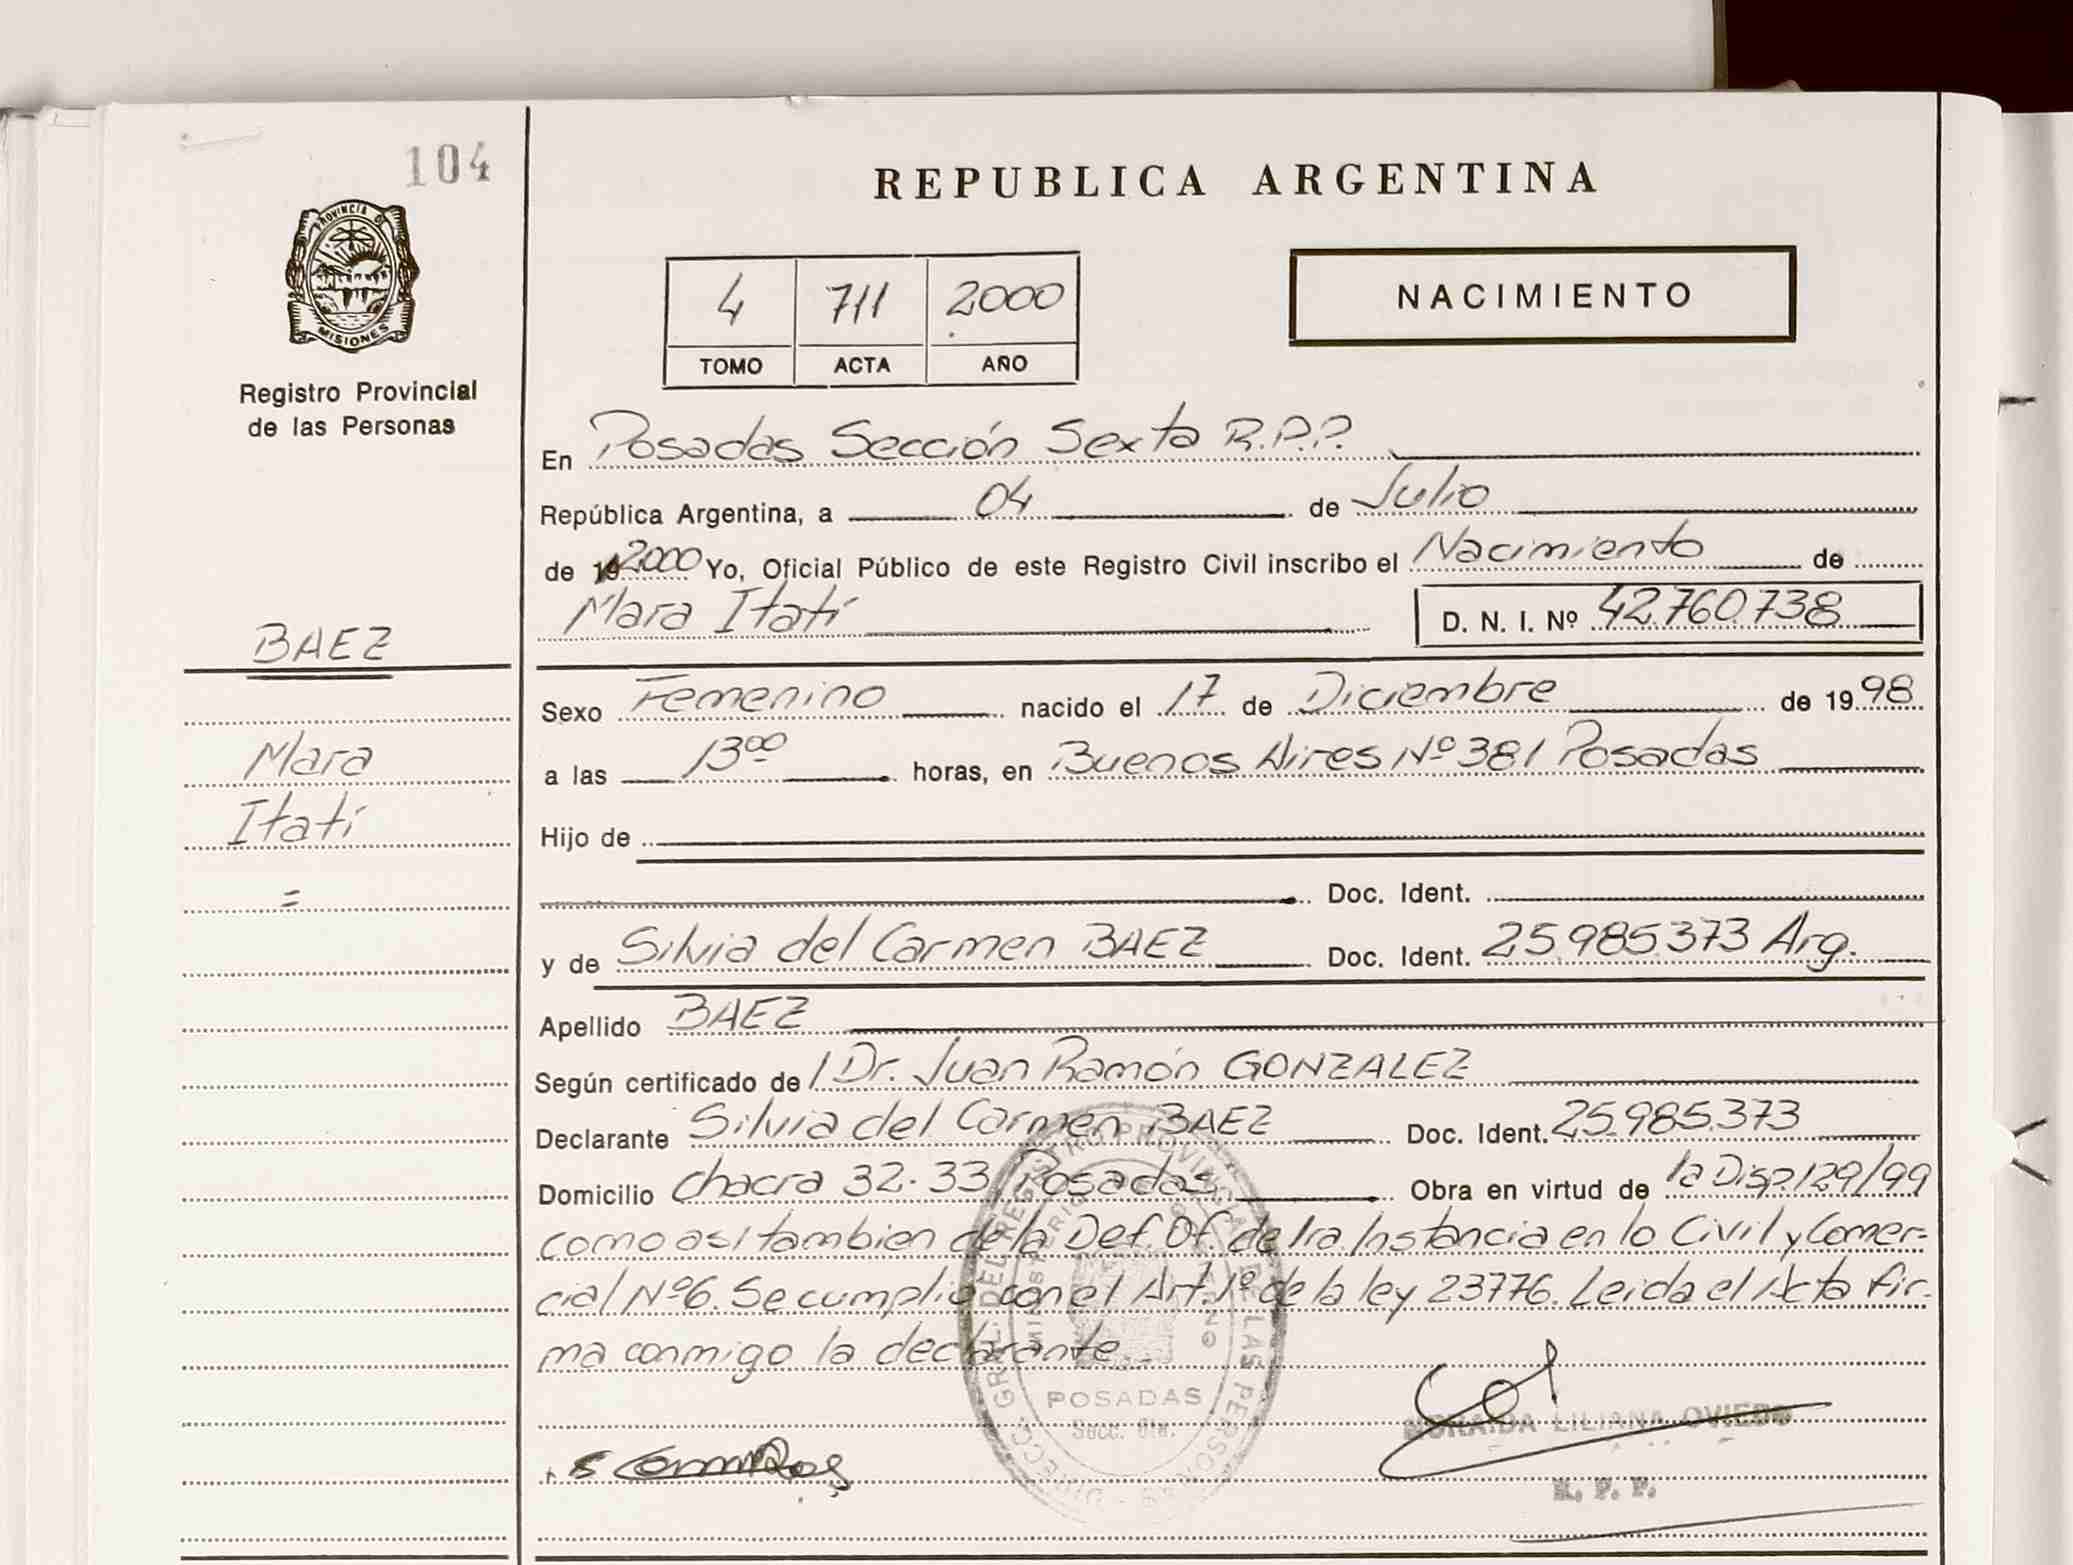 104
PROVINCIA DE
MISIONES
Registro Provincial
de las Personas
BAEZ
Mara
Itatí
=
REPUBLICA ARGENTINA
4 711 2000
TOMO ACTA AÑO
NACIMIENTO
En Posadas Sección Sexta R.P.P.
República Argentina, a 04 de Julio
de 19 2000 Yo, Oficial Público de este Registro Civil inscribo el Nacimiento de
Mara Itatí D. N. I. Nº 42.760.738
Sexo Femenino nacido el 17 de Diciembre de 1998
a las 13 00 horas, en Buenos Aires Nº 381 Posadas
Hijo de
Doc. Ident.
y de Silvia del Carmen BAEZ Doc. Ident. 25.985.373 Arg.
Apellido BAEZ
Según certificado de l Dr. Juan Ramón GONZALEZ
Declarante Silvia del Carmen BAEZ Doc. Ident. 25.985.373
Domicilio Chacra 32-33 Posadas Obra en virtud de la Disp. 129/99
como asi tambien de la Def. Of. de 1ra. Instancia en lo Civil y Comer-
cial Nº 6. Se cumplió con el Art. 1º de la ley 23776. Leida el Acta fir-
ma conmigo la declarante
DIRECC. GRAL. DEL REGISTRO PROVINCIAL DE LAS PERSONAS
MINISTERIO DE GOBIERNO
POSADAS
Secc. 6ta.
NORAIDA LILIANA OVIEDO
R. P. P.